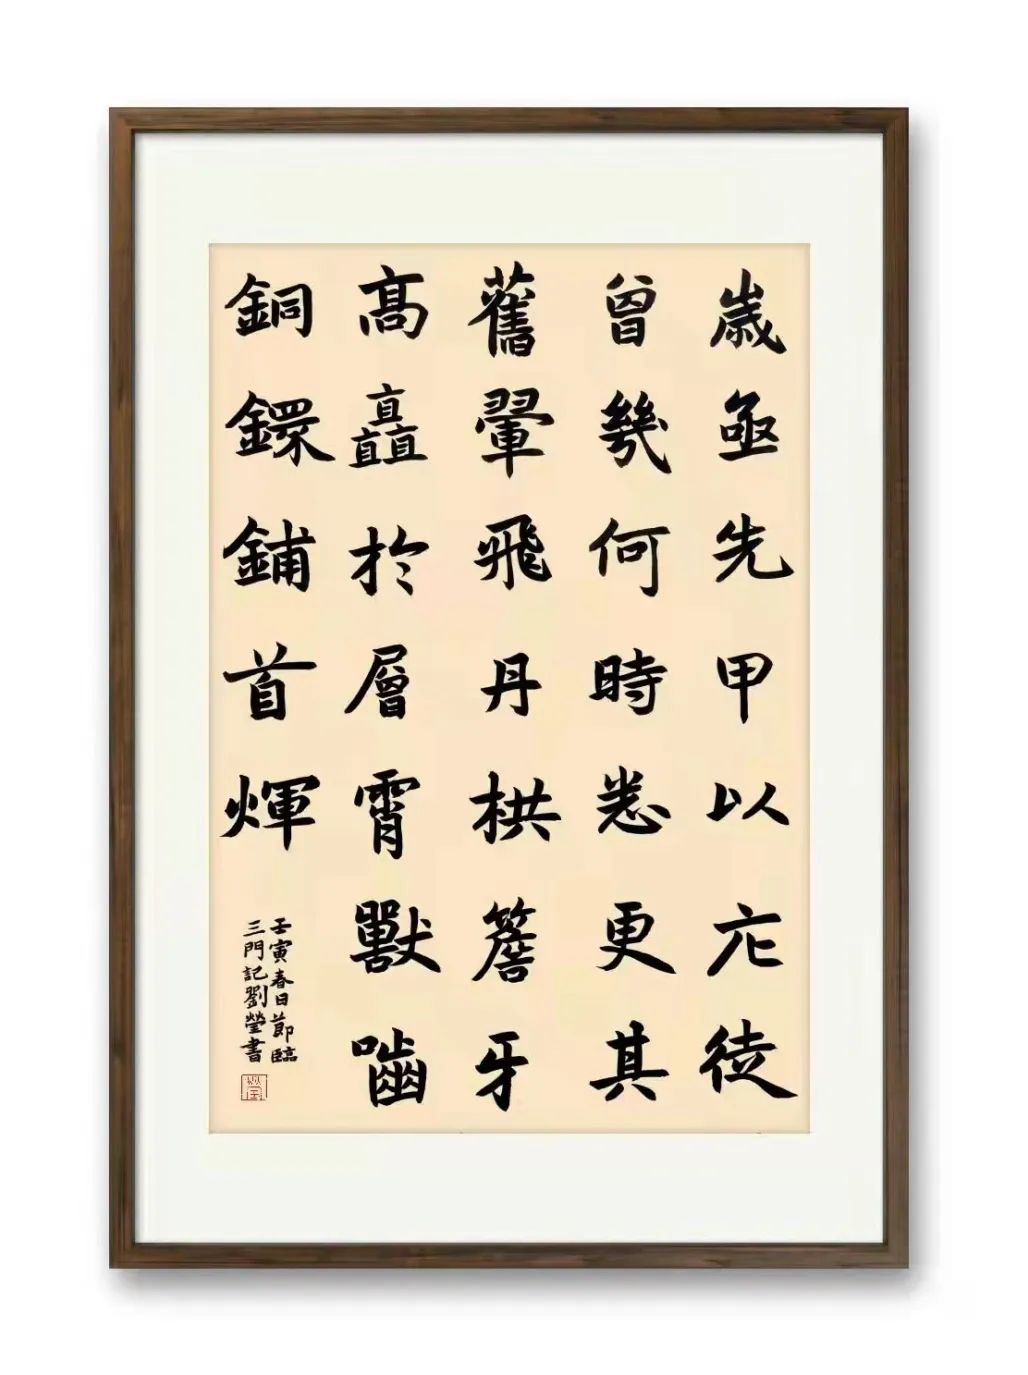 歲亟先甲以庀徒
曾幾何時悉更其
舊翬飛丹栱簷牙
高矗於層霄獸嚙
銅鐶鋪首煇
壬寅春日節臨
三門記劉瑩書